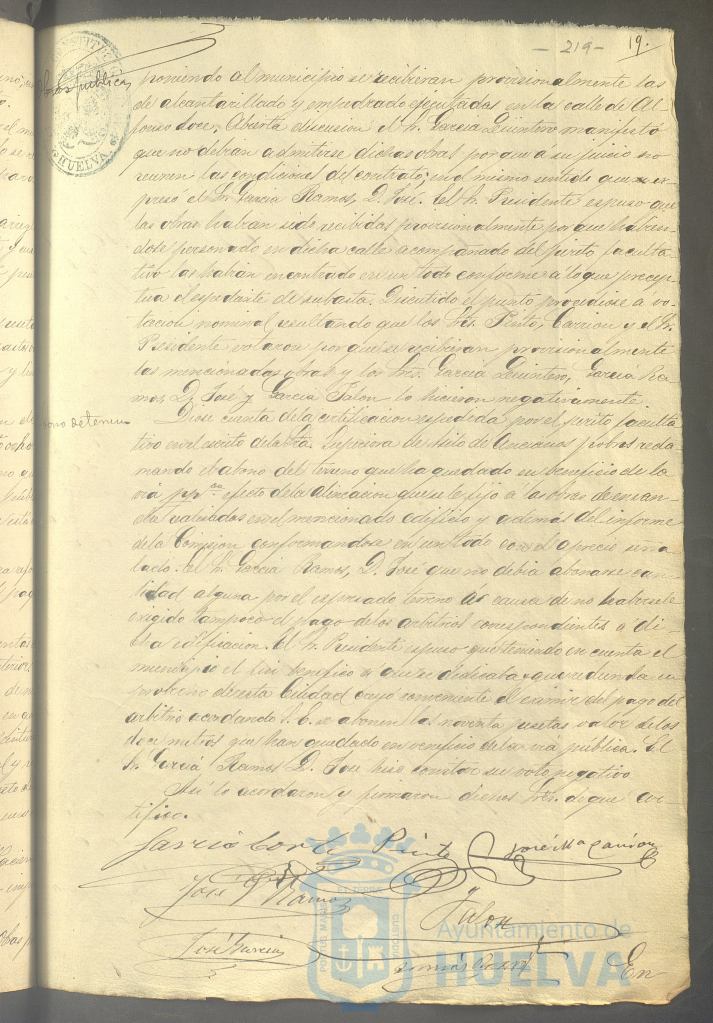 - 219 - 19.
Obras públicas
poniendo al municipio se recibieran provisionalmente las
de alcantarillado y empedrado ejecutadas en la calle de Al-
fonso doce. Abierta discusion el Sr. Garcia Quintero manifestó
que no debian admitirse dichas obras por que á su juicio no
reunen las condiciones del contrato; en el mismo sentido que se ex-
presó el Sr. Garcia Ramos, D. José. El Sr. Presidente espuso que
las obras habian sido recibidas provisionalmente por que habien-
dose personado en dicha calle acompañado del perito faculta-
tivo las habian encontrado en un todo conforme a lo que precep-
tua el espediente de subasta. Discutido el punto procediose á vo-
tacion nominal, resultando que los Sres. Pinto, Carrion y el Sr.
Presidente votaron por que se recibieran provisionalmente
las mencionadas obras y los Sres. Garcia Quintero, Garcia Ra-
mos, D. José y Garcia Jalon lo hicieron negativamente.
Abono de terreno
Diose cuenta de la certificacion espedida por el perito faculta-
tivo en el escrito de la Superiora de Asilo de Ancianos pobres recla-
mando el abono del terreno que ha quedado en beneficio de la
via efecto de la alineacion que se le fijo a las obras de ensan-
che realizadas en el mencionado edificio y además del informe
de la Comision conformandose en un todo con el aprecio seña-
lado. El Sr. Garcia Ramos, D. José que no debia abonarse can-
tidad alguna por el espresado terreno á causa de no habersele
exigido tampoco el pago de los arbitrios correspondientes a di-
cha edificacion. El Sr. Presidente espuso que teniendo en cuenta el
municipio el fin benefico a que se dedicaba y que redunda en
provecho de esta Ciudad creyó conveniente el eximir del pago del
arbitrio acordando S. E. se abonen las noventa pesetas valor de los
doce metros que han quedado en beneficio de la via publica. El
Sr. Garcia Ramos D. Jose hizo constar su voto negativo
Asi lo acordaron y firmaron dichos Sres. de que cer-
tifico.
Garcia Cortés Pinto José Mª Carrion
José G. Ramos
Jalon
José Garcia
En
CONSTITUCI
HUELVA
PORTUS MARIS
ET TERRAE
CUSTODIA
Ayuntamiento de
HUELVA